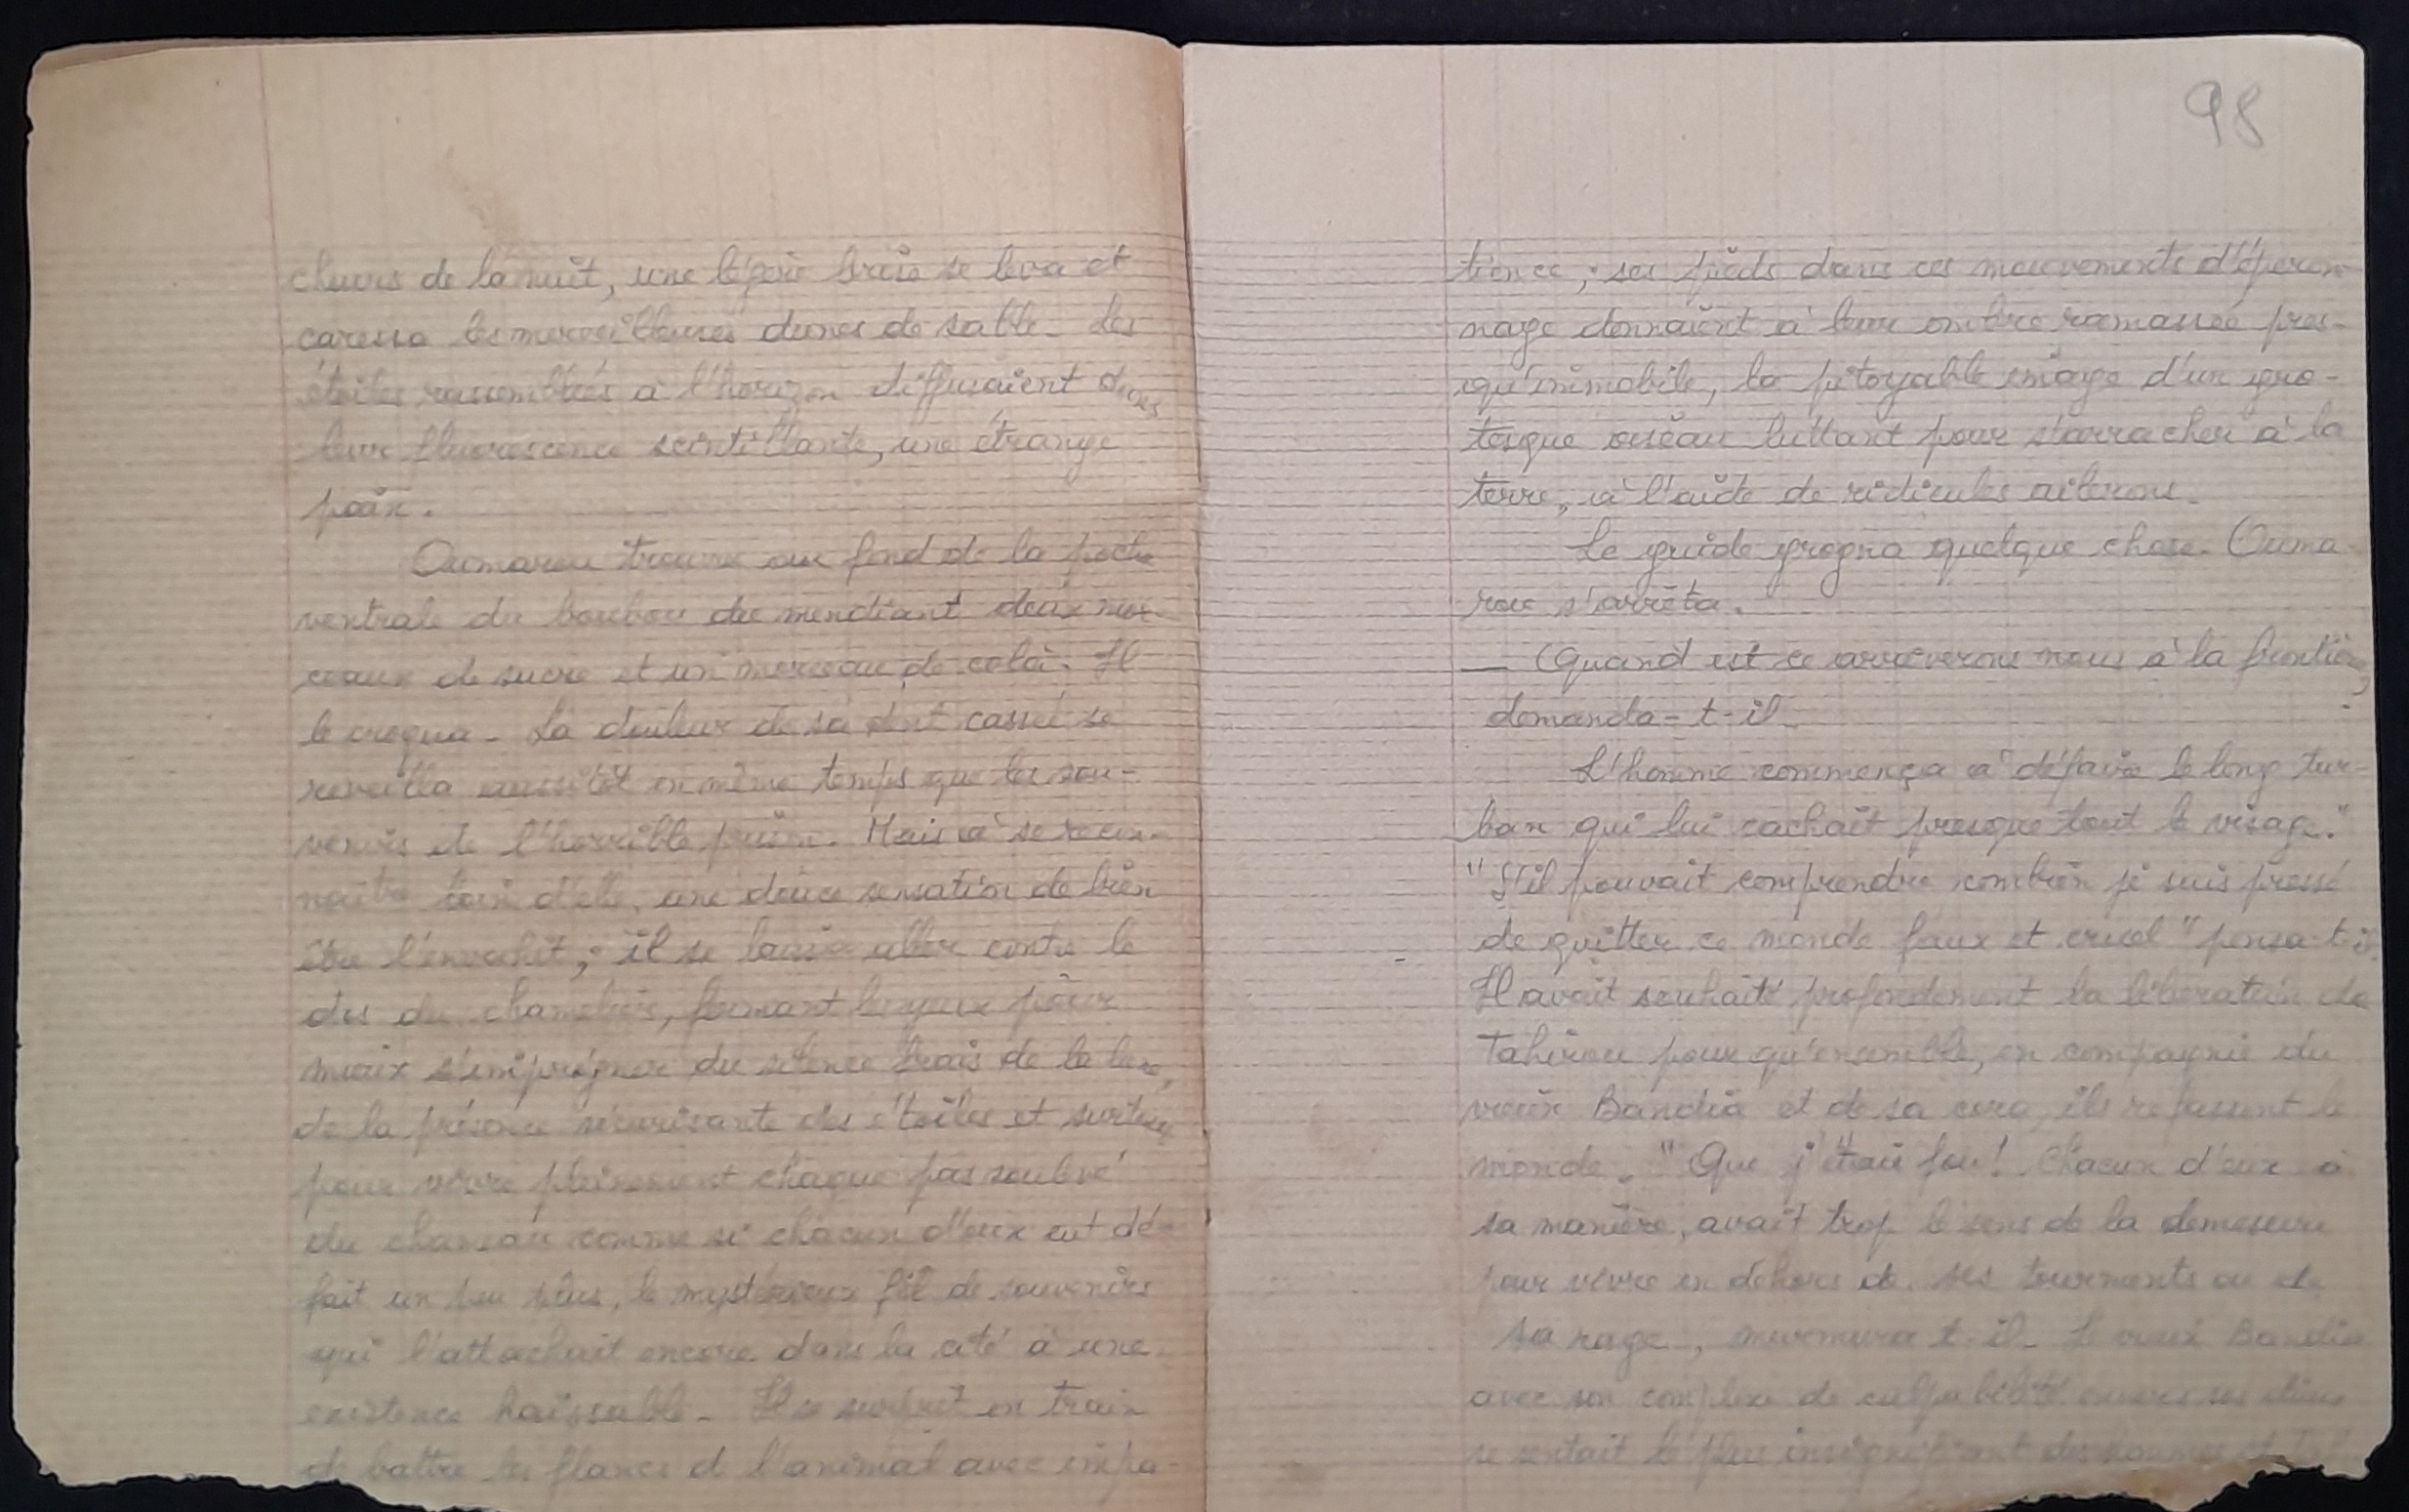 cheurs de la nuit, une légère brise se leva et
caressa les merveilleuses dunes de sable. Les
étoiles rassemblées à l'horizon diffusaient dans
leur fluorescence scintillante, une étrange
paix.
Oumarou trouva au fond de la poche
ventrale du boubou du mendiant deux mor-
ceaux de sucre et un morceau de cola. Il
le croqua. La douleur de sa dent cassée se
reveilla aussitôt en même temps que les sou-
venirs de l'horrible prison. Mais à se recon-
naître loin d'elle, une douce sensation de bien
être l'envahit ; il se laissa aller contre le
dos du chamelier, fermant les yeux pour
mieux s'imprégner du silence frais de la lune,
de la présence sécurisante des étoiles et surtout
pour vivre pleinement chaque pas soulevé
du chameau comme si chacun d'eux eut dé-
fait un peu plus, le mystérieux fil de souvenirs
qui l'attachait encore dans la cité à une
existence haïssable. Il se surprit en train
de battre les flancs d l'animal avec impa-
98
tience ; ses pieds dans ces mouvements d'éperon-
nage donnaient à leur ombre ramassée pres-
qu'immobile, la pitoyable image d'un gro-
tesque oiseau luttant pour s'arracher à la
terre, à l'aide de ridicules ailerons.
Le guide grogna quelque chose. Ouma-
rou s'arrêta.
— Quand est ce arriverons nous à la frontière,
demanda-t-il.
L'homme commença à défaire le long tur-
ban qui lui cachait presque tout le visage."
"S'il pouvait comprendre combien je suis pressé
de quitter ce monde faux et cruel" pensa-t-il.
Il avait souhaité profondement la libération de
Tahirou pour qu'ensemble, en compagnie du
vieux Bandia et de sa cora, ils refassent le
monde. "Que j'étais fou! Chacun d'eux à
sa manière, avait trop le sens de la demesure
pour vivre en dehors de ses tourments ou de
sa rage, murmura t-il. Le vieux Bandia
avec son complexe de culpabilité envers ses
se sentait le plus insignifiant des hommes et